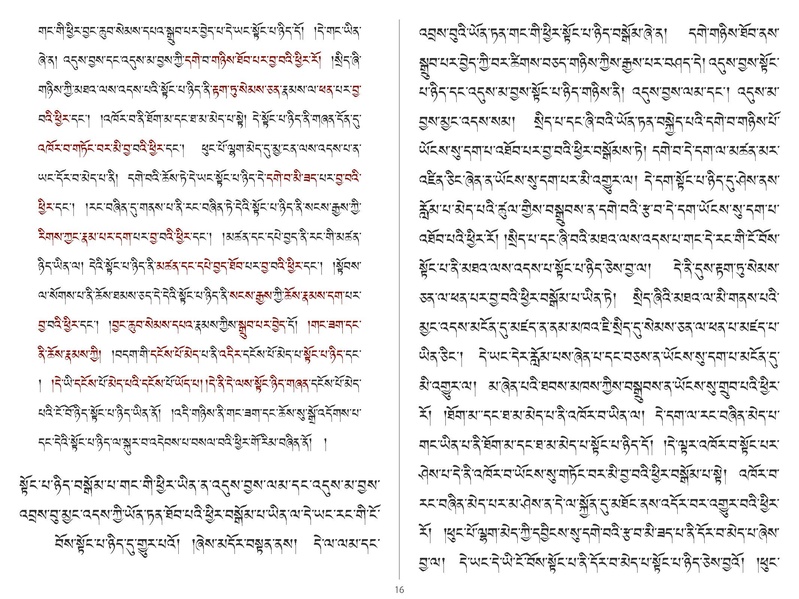 གང་གི་ཕྱིར་བྱང་ཆུབ་སེམས་དཔའ་སྒྲུབ་པར་བྱེད་པ་དེ་ཡང་སྟོང་པ་ཉིད་དོ། །དེ་གང་ཡིན་
ཞེ་ན། འདུས་བྱས་དང་འདུས་མ་བྱས་ཀྱི་དགེ་བ་གཉིས་ཐོབ་པར་བྱ་བའི་ཕྱིར་རོ། །སྲིད་ཞི་
གཉིས་ཀྱི་མཐའ་ལས་འདས་པའི་སྟོང་པ་ཉིད་ནི་རྟག་ཏུ་སེམས་ཅན་རྣམས་ལ་ཕན་པར་བྱ་
བའི་ཕྱིར་དང་། །འཁོར་བ་ནི་ཐོག་མ་དང་ཐ་མ་མེད་པ་སྟེ། དེ་སྟོང་པ་ཉིད་ནི་གཞན་དོན་དུ་
འཁོར་བ་གཏོང་བར་མི་བྱ་བའི་ཕྱིར་དང་། ཕུང་པོ་ལྷག་མེད་དུ་མྱ་ངན་ལས་འདས་པ་ན་
ཡང་དོར་བ་མེད་པ་ནི། དགེ་བའི་ཆོས་ཏེ་དེ་ཡང་སྟོང་པ་ཉིད་དེ་དགེ་བ་མི་ཟད་པར་བྱ་བའི་
ཕྱིར་དང་། །རང་བཞིན་དུ་གནས་པ་ནི་རང་བཞིན་ཏེ་དེའི་སྟོང་པ་ཉིད་ནི་སངས་རྒྱས་ཀྱི་
རིགས་ཀྱང་རྣམ་པར་དག་པར་བྱ་བའི་ཕྱིར་དང་། །མཚན་དང་དཔེ་བྱད་ནི་རང་གི་མཚན་
ཉིད་ཡིན་ལ། དེའི་སྟོང་པ་ཉིད་ནི་མཚན་དང་དཔེ་བྱད་ཐོབ་པར་བྱ་བའི་ཕྱིར་དང་། །སྟོབས་
ལ་སོགས་པ་ནི་ཆོས་ཐམས་ཅད་དེ་དེའི་སྟོང་པ་ཉིད་ནི་སངས་རྒྱས་ཀྱི་ཆོས་རྣམས་དག་པར་
བྱ་བའི་ཕྱིར་དང་། །བྱང་ཆུབ་སེམས་དཔའ་རྣམས་ཀྱིས་སྒྲུབ་པར་བྱེད་དོ། །གང་ཟག་དང་
ནི་ཆོས་རྣམས་ཀྱི། །བདག་གི་དངོས་པོ་མེད་པ་ནི་འདིར་དངོས་པོ་མེད་པ་སྟོང་པ་ཉིད་དང་
། །དེ་ཡི་དངོས་པོ་མེད་པའི་དངོས་པོ་ཡོད་པ། །དེ་ནི་དེ་ལས་སྟོང་ཉིད་གཞན་དངོས་པོ་མེད་
པའི་ངོ་བོ་ཉིད་སྟོང་པ་ཉིད་ཡིན་ནོ། །འདི་གཉིས་ནི་གང་ཟག་དང་ཆོས་སུ་སྒྲོ་འདོགས་པ་
དང་དེའི་སྟོང་པ་ཉིད་ལ་སྐུར་བ་འདེབས་པ་བསལ་བའི་ཕྱིར་གོ་རིམ་བཞིན་ནོ། །
སྟོང་པ་ཉིད་བསྒོམ་པ་གང་གི་ཕྱིར་ཡིན་ན་འདུས་བྱས་ལམ་དང་འདུས་མ་བྱས་
འབྲས་བུ་མྱང་འདས་ཀྱི་ཡོན་ཏན་ཐོབ་པའི་ཕྱིར་བསྒོམ་པ་ཡིན་ལ་དེ་ཡང་རང་གི་ངོ་
བོས་སྟོང་པ་ཉིད་དུ་གྱུར་པའོ། །ཞེས་མདོར་བསྟན་ནས། དེ་ལ་ལམ་དང་
འབྲས་བུའི་ཡོན་ཏན་གང་གི་ཕྱིར་སྟོང་པ་ཉིད་བསྒོམ་ཞེ་ན། དགེ་གཉིས་ཐོབ་ནས་
སྒྲུབ་པར་བྱེད་ཀྱི་བར་ཚིགས་བཅད་གཉིས་ཀྱིས་རྒྱས་པར་བཤད་དེ། འདུས་བྱས་སྟོང་
པ་ཉིད་དང་འདུས་མ་བྱས་སྟོང་པ་ཉིད་གཉིས་ནི། འདུས་བྱས་ལམ་དང་། འདུས་མ་
བྱས་མྱང་འདས་སམ། སྲིད་པ་དང་ཞི་བའི་ཡོན་ཏན་བསྐྱེད་པའི་དགེ་བ་གཉིས་པོ་
ཡོངས་སུ་དག་པ་འཐོབ་པར་བྱ་བའི་ཕྱིར་བསྒོམས་ཏེ། དགེ་བ་དེ་དག་ལ་མཚན་མར་
འཛིན་ཅིང་ཞེན་ན་ཡོངས་སུ་དག་པར་མི་འགྱུར་ལ། དེ་དག་སྟོང་པ་ཉིད་དུ་ཤེས་ནས་
རློམ་པ་མེད་པའི་ཚུལ་གྱིས་བསྒྲུབས་ན་དགེ་བའི་རྩ་བ་དེ་དག་ཡོངས་སུ་དག་པ་
འཐོབ་པའི་ཕྱིར་རོ། །སྲིད་པ་དང་ཞི་བའི་མཐའ་ལས་འདས་པ་གང་དེ་རང་གི་ངོ་བོས་
སྟོང་པ་ནི་མཐའ་ལས་འདས་པ་སྟོང་པ་ཉིད་ཅེས་བྱ་ལ། དེ་ནི་དུས་རྟག་ཏུ་སེམས་
ཅན་ལ་ཕན་པར་བྱ་བའི་ཕྱིར་བསྒོམ་པ་ཡིན་ཏེ། སྲིད་ཞིའི་མཐའ་ལ་མི་གནས་པའི་
མྱང་འདས་མངོན་དུ་མཛད་ན་ནམ་མཁའ་ཇི་སྲིད་དུ་སེམས་ཅན་ལ་ཕན་པ་མཛད་པ་
ཡིན་ཅིང་། དེ་ཡང་དེར་རློམ་པས་ཞེན་པ་དང་བཅས་ན་ཡོངས་སུ་དག་པ་མངོན་དུ་
མི་འགྱུར་ལ། མ་ཞེན་པའི་ཐབས་མཁས་ཀྱིས་བསྒྲུབས་ན་ཡོངས་སུ་གྲུབ་པའི་ཕྱིར་
རོ། །ཐོག་མ་དང་ཐ་མ་མེད་པ་ནི་འཁོར་བ་ཡིན་ལ། དེ་དག་ལ་རང་བཞིན་མེད་པ་
གང་ཡིན་པ་ནི་ཐོག་མ་དང་ཐ་མ་མེད་པ་སྟོང་པ་ཉིད་དོ། །དེ་ལྟར་འཁོར་བ་སྟོང་པར་
ཤེས་པ་དེ་ནི་འཁོར་བ་ཡོངས་སུ་གཏོང་བར་མི་བྱ་བའི་ཕྱིར་བསྒོམ་པ་སྟེ། འཁོར་བ་
རང་བཞིན་མེད་པར་མ་ཤེས་ན་དེ་ལ་སྐྱོན་དུ་མཐོང་ནས་འདོར་བར་འགྱུར་བའི་ཕྱིར་
རོ། །ཕུང་པོ་ལྷག་མེད་ཀྱི་དབྱིངས་སུ་དགེ་བའི་རྩ་བ་མི་ཟད་པ་ནི་དོར་བ་མེད་པ་ཞེས་
བྱ་ལ། དེ་ཡང་དེ་ཡི་ངོ་བོས་སྟོང་པ་ནི་དོར་བ་མེད་པ་སྟོང་པ་ཉིད་ཅེས་བྱའོ། །ཕུང་
16